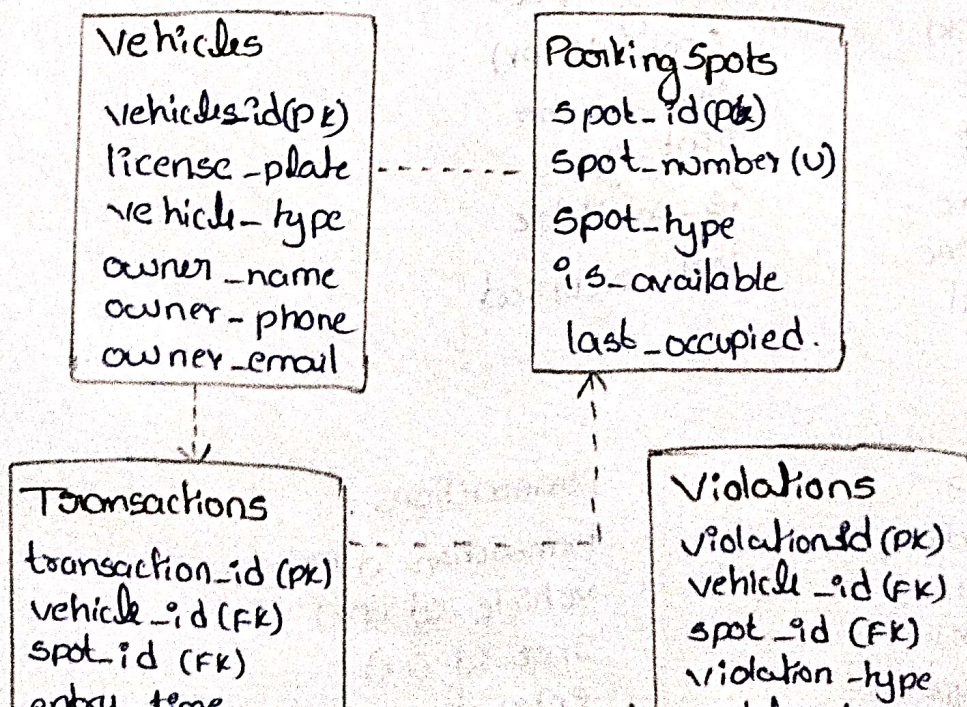 Vehicles
vehicles_id(PK)
license_plate
vehicle_type
owner_name
owner_phone
owner_email
Parking Spots
spot_id(PK)
spot_number (U)
spot_type
is_available
last_occupied.
Transactions
transaction_id (PK)
vehicle_id (FK)
spot_id (FK)
entry_time
Violations
violation_id (PK)
vehicle_id (FK)
spot_id (FK)
violation_type